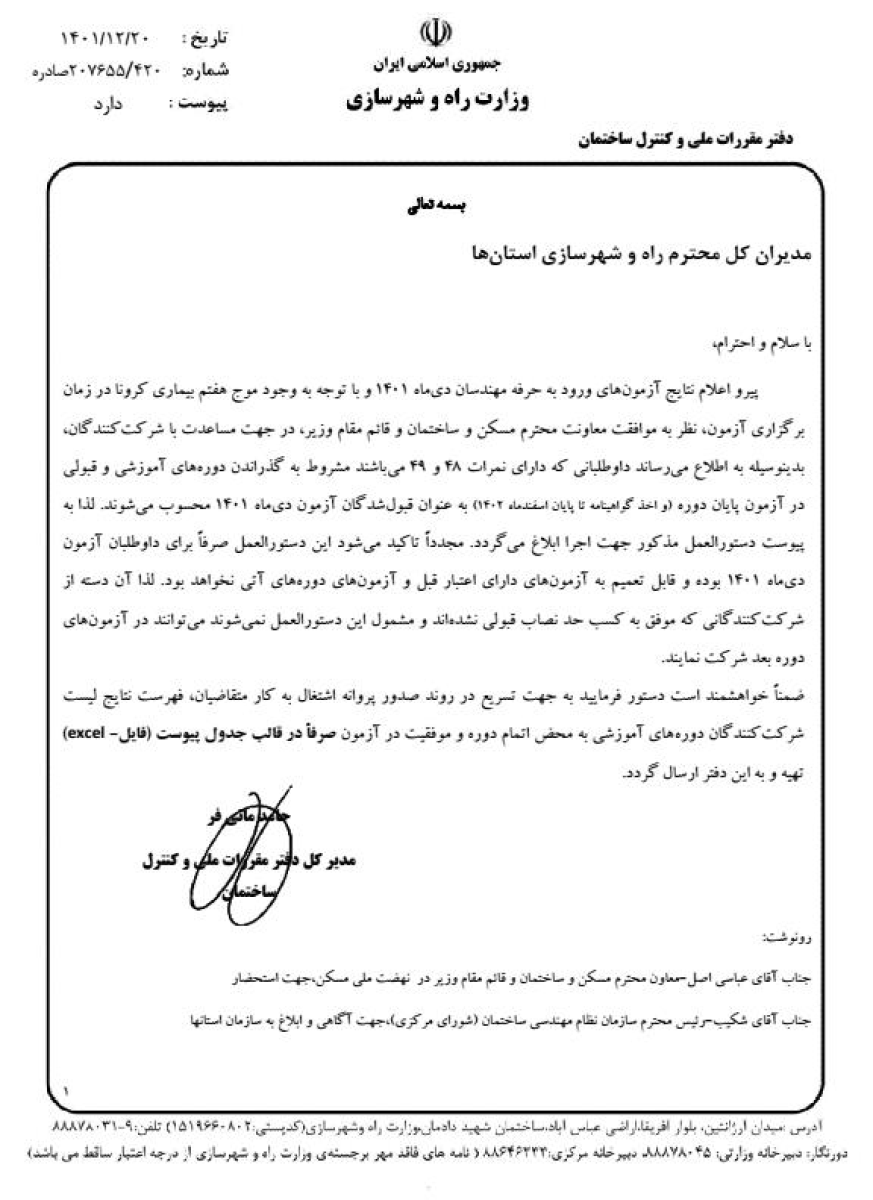 جمهوری اسلامی ایران
وزارت راه و شهرسازی
تاریخ : ۱۴۰۱/۱۲/۲۰
شماره: ۲۰۷۶۵۵/۴۲۰صادره
پیوست : دارد
دفتر مقررات ملی و کنترل ساختمان
بسمه تعالی
مدیران کل محترم راه و شهرسازی استان‌ها
با سلام و احترام،
پیرو اعلام نتایج آزمون‌های ورود به حرفه مهندسان دی‌ماه ۱۴۰۱ و با توجه به وجود موج هفتم بیماری کرونا در زمان
برگزاری آزمون، نظر به موافقت معاونت محترم مسکن و ساختمان و قائم مقام وزیر، در جهت مساعدت با شرکت‌کنندگان،
بدینوسیله به اطلاع می‌رساند داوطلبانی که دارای نمرات ۴۸ و ۴۹ می‌باشند مشروط به گذراندن دوره‌های آموزشی و قبولی
در آزمون پایان دوره (و اخذ گواهینامه تا پایان اسفندماه ۱۴۰۲) به عنوان قبول‌شدگان آزمون دی‌ماه ۱۴۰۱ محسوب می‌شوند. لذا به
پیوست دستورالعمل مذکور جهت اجرا ابلاغ می‌گردد. مجدداً تاکید می‌شود این دستورالعمل صرفاً برای داوطلبان آزمون
دی‌ماه ۱۴۰۱ بوده و قابل تعمیم به آزمون‌های دارای اعتبار قبل و آزمون‌های دوره‌های آتی نخواهد بود. لذا آن دسته از
شرکت‌کنندگانی که موفق به کسب حد نصاب قبولی نشده‌اند و مشمول این دستورالعمل نمی‌شوند می‌توانند در آزمون‌های
دوره بعد شرکت نمایند.
ضمناً خواهشمند است دستور فرمایید به جهت تسریع در روند صدور پروانه اشتغال به کار متقاضیان، فهرست نتایج لیست
شرکت‌کنندگان دوره‌های آموزشی به محض اتمام دوره و موفقیت در آزمون صرفاً در قالب جدول پیوست (فایل- excel)
تهیه و به این دفتر ارسال گردد.
حامد مانی فر
مدیر کل دفتر مقررات ملی و کنترل
ساختمان
رونوشت:
جناب آقای عباسی اصل-معاون محترم مسکن و ساختمان و قائم مقام وزیر در نهضت ملی مسکن،جهت استحضار
جناب آقای شکیب-رئیس محترم سازمان نظام مهندسی ساختمان (شورای مرکزی)،جهت آگاهی و ابلاغ به سازمان استانها
۱
آدرس :میدان آرژانتین، بلوار افریقا،اراضی عباس آباد،ساختمان شهید دادمان،وزارت راه وشهرسازی(کدپستی:۱۵۱۹۶۶۰۸۰۲) تلفن:۹-۸۸۸۷۸۰۳۱
دورنگار: دبیرخانه وزارتی: ۸۸۸۷۸۰۴۵، دبیرخانه مرکزی:۸۸۶۴۶۲۳۳ ( نامه های فاقد مهر برجسته‌ی وزارت راه و شهرسازی از درجه اعتبار ساقط می باشد)